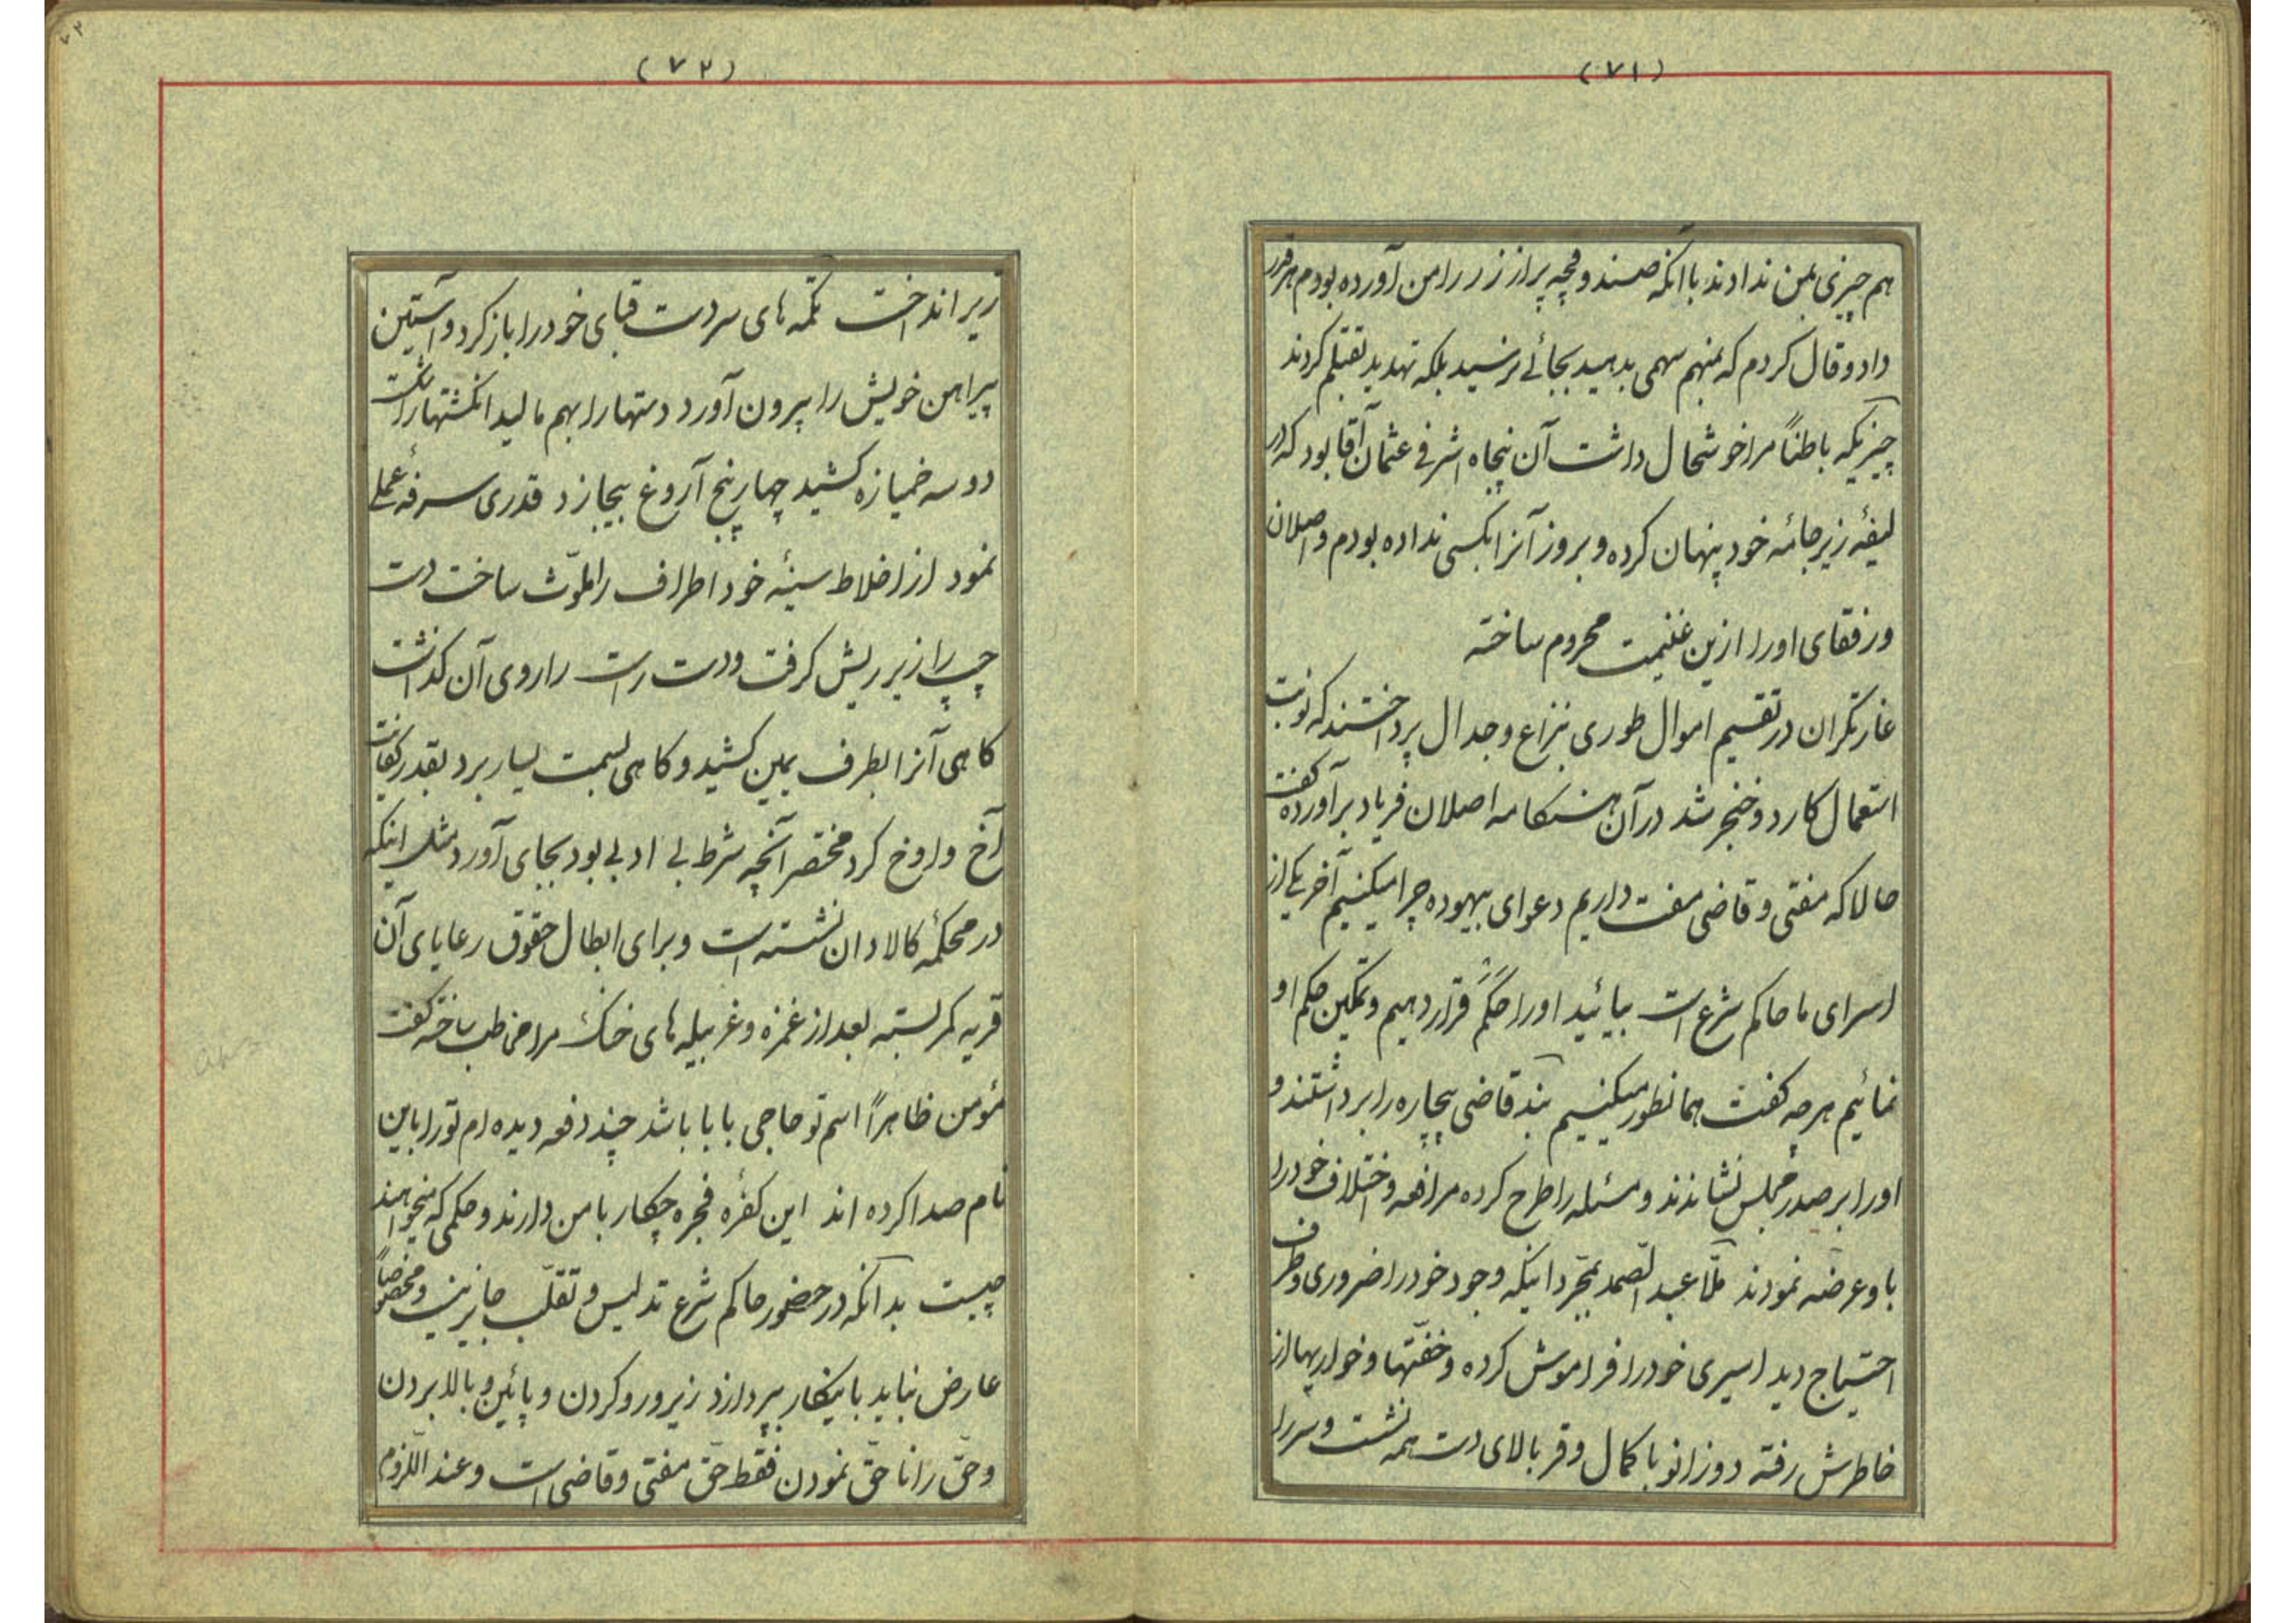 (۷۱)
هم چیزی بمن ندادند با آنکه صندوقچه پر از زر را من آورده بودم هر قدر
داد و قال کردم که بمنهم سهمی بدهید بجائے نرسید بلکه تهدید بقتلم کردند
چیزیکه باطناً مرا خوشحال داشت آن پنجاه اشرفی عثمان آقا بود که در
لیفهٔ زیر جامهٔ خود پنهان کرده و بروز آنرا بکسی نداده بودم و اصلان
و رفقای او را ازین غنیمت محروم ساخته
غارتکران در تقسیم اموال طوری بنزاع و جدال پرداختند که نوبت
استعمال کارد و خنجر شد در آن هنکامه اصلان فریاد برآورده کفت
حالا که مفتی و قاضی مفت داریم دعوای بیهوده چرا میکنیم آخر یکی از
اسرای ما حاکم شرع است بیائید او را حَکَم قرار دهیم و تمکین حکم او
نمائیم هرچه کفت همانطور میکنیم بند قاضی بیچاره را برداشتند و
او را بر صدر مجلس نشاندند و مسئله را طرح کرده مرافعه و اختلاف خود را
باو عرضه نمودند ملّا عبد الصّمد بمجرّد اینکه وجود خود را ضروری و طرف
احتیاج دید اسیری خود را فراموش کرده و خفّتها و خواریها از
خاطرش رفته دو زانو با کمال وقر بالای دست همه نشست و سر را
(۷۲)
زیر انداخت تکمه های سردست قبای خود را باز کرد و آستین
پیراهن خویش را بیرون آورد دستها را بهم مالید انکشتها را شکست
دو سه خمیازه کشید چهار پنج آروغ بیجا زد قدری سرفهٔ عملی
نمود از اخلاط سینهٔ خود اطراف را ملوّث ساخت دست
چپ را زیر ریش کرفت و دست راست را روی آن کذاشت
کاهی آنرا بطرف یمین کشید و کاهی بسمت یسار برد بقدر کفایت
آخ و اوخ کرد مختصر آنچه شرط بی ادبی بود بجای آورد مثل اینکه
در محکمهٔ کالادان نشسته است و برای ابطال حقوق رعایای آن
قریه کمر بسته بعد از غمزه و غربیله های خنک مرا مخاطب ساخته کفت
مؤمن ظاهراً اسم تو حاجی بابا باشد چند دفعه دیده ام تو را باین
نام صدا کرده اند این کفرهٔ فجره چکار با من دارند و حکمی که میخواهند
چیست بدانکه در حضور حاکم شرع تدلیس و تقلّب جایز نیست و مخصوصاً
عارض نباید باینکار بپردازد زیر و رو کردن و پائین و بالا بردن
و حقّ را ناحقّ نمودن فقط حقّ مفتی و قاضی است و عند اللّزوم